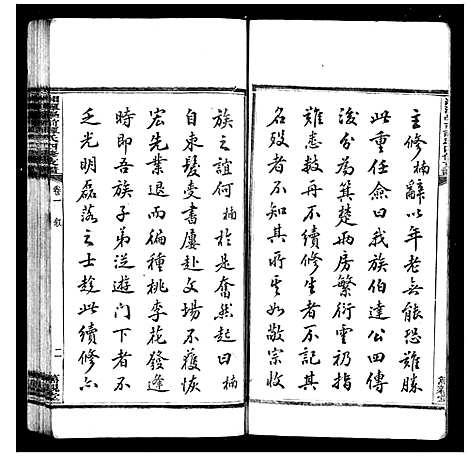 主修楠辭以年老無能恐難勝
此重任僉曰我族伯達公四傳
後分為箕楚兩房繁衍雲礽指
難悉數再不續修生者不記其
名歿者不知其所其如敬宗收
族之誼何楠於是奮然起曰楠
自束髮受書屢赴文場不獲恢
宏先業退而徧種桃李花發逢
時即吾族子弟從遊門下者不
乏光明磊落之士趁此續修六
卷一
叙
二